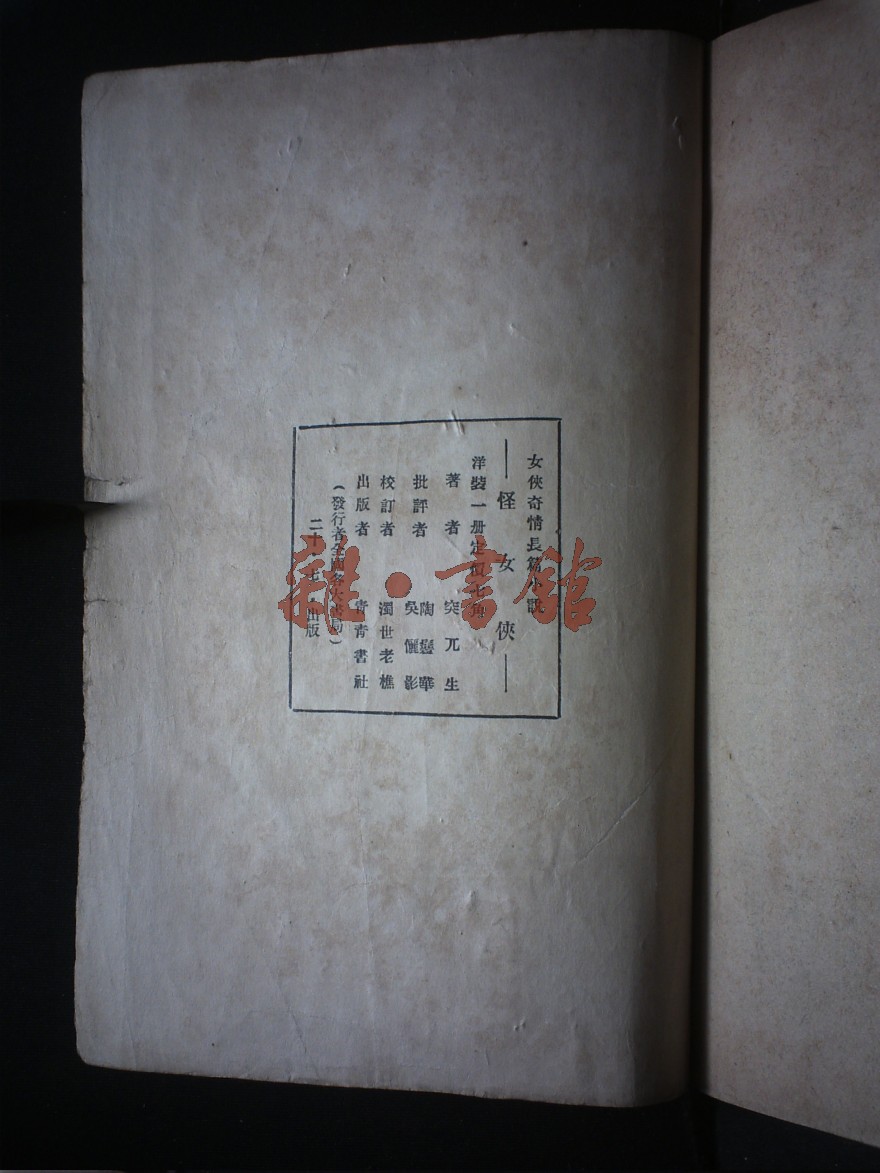 女俠奇情長篇小說
怪女俠
洋裝一册定價七角
著者 突兀生
批評者 陶鸞華 吳儷影
校訂者 濁世老樵
出版者 青青書社
(發行者全國各大書局)
二十 出版
雜·書館